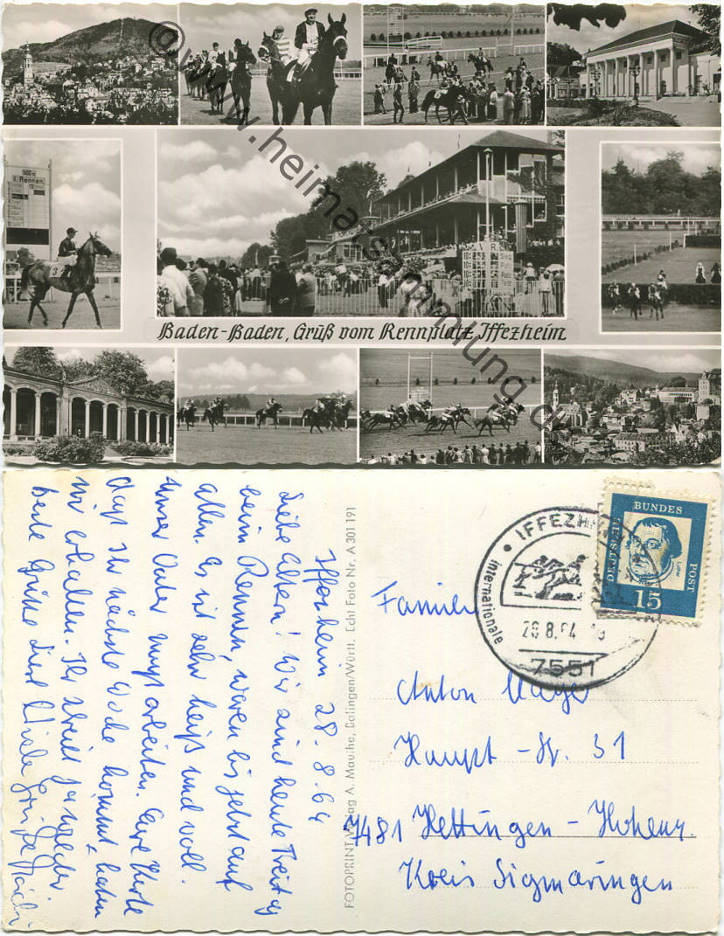 500m
I. Rennen
Baden-Baden, Gruß vom Rennplatz Iffezheim
© www.heimatsammlung.de
Iffezheim 28.8.64
Liebe Eltern! Wir sind heute Freitag
beim Rennen, waren bis jetzt auf
allen. Es ist sehr heiß und voll.
Unser Vater muß arbeiten. Eure Karte
daß Ihr nächste Woche kommt, haben
wir erhalten. Ihr schreibt ja wieder
beste Grüße
Viele Grüße
FOTOPRINT-Verlag A. Mauthe, Balingen/Württ. Echt Foto Nr. A 301 191
IFFEZH
Internationale
28.8.64
7551
DEUTSCHE
BUNDES
POST
Luther
15
Familie
Anton Mayer
Haupt-Str. 31
7481 Hettingen - Hohenz.
Kreis Sigmaringen